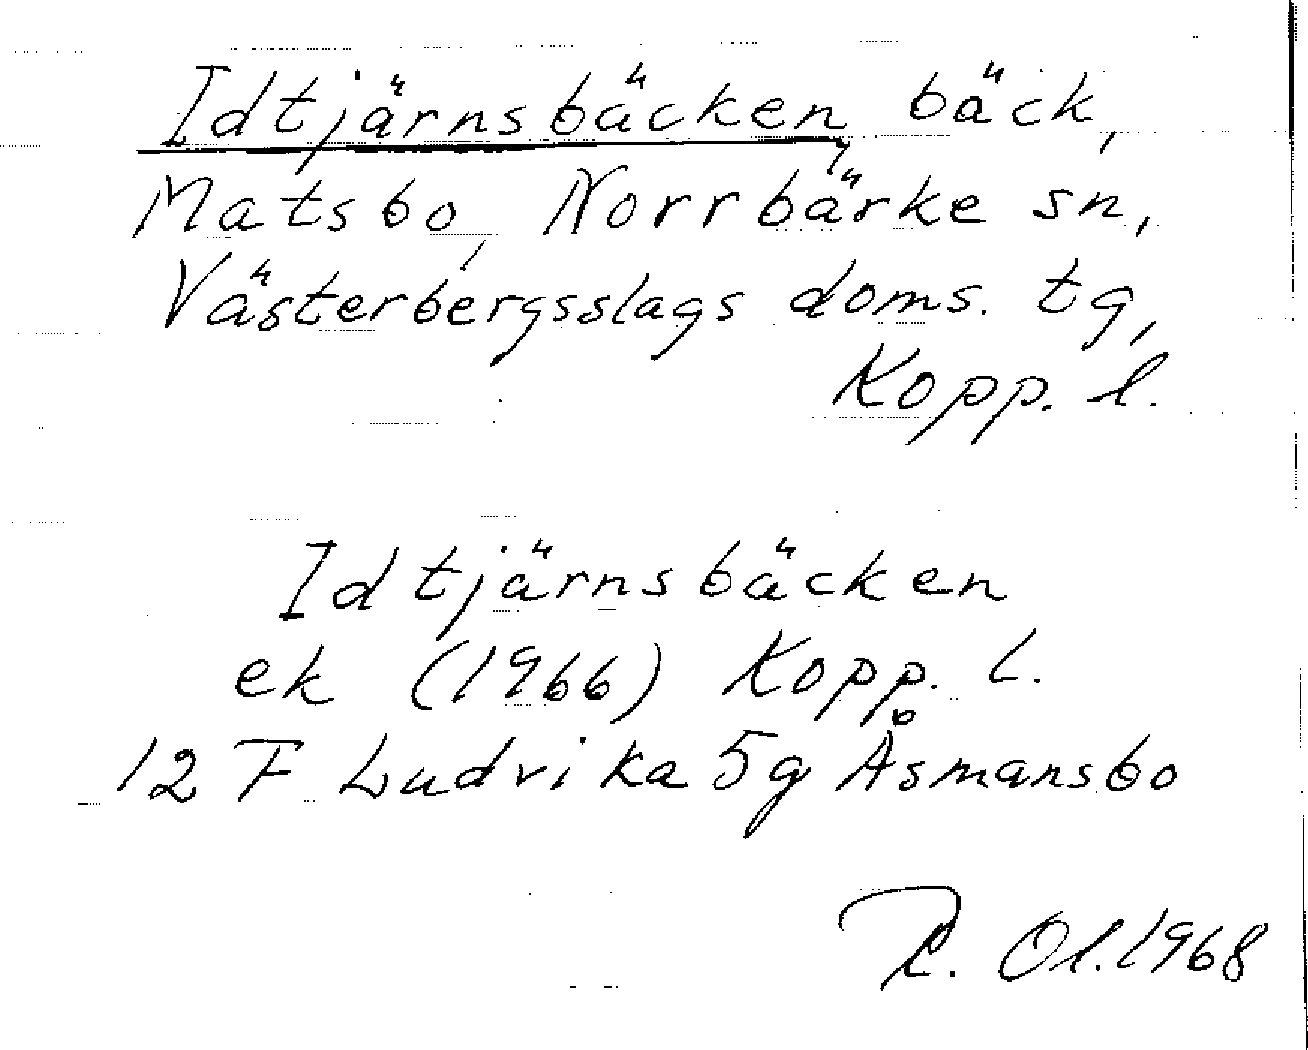 Idtjärnsbäcken, bäck,
Matsbo, Norrbärke sn,
Västerbergsslags doms. tg,
Kopp. l.
Idtjärnsbäcken
ek (1966) Kopp. l.
12 F Ludvika 5g Åsmansbo
R. Ol. 1968